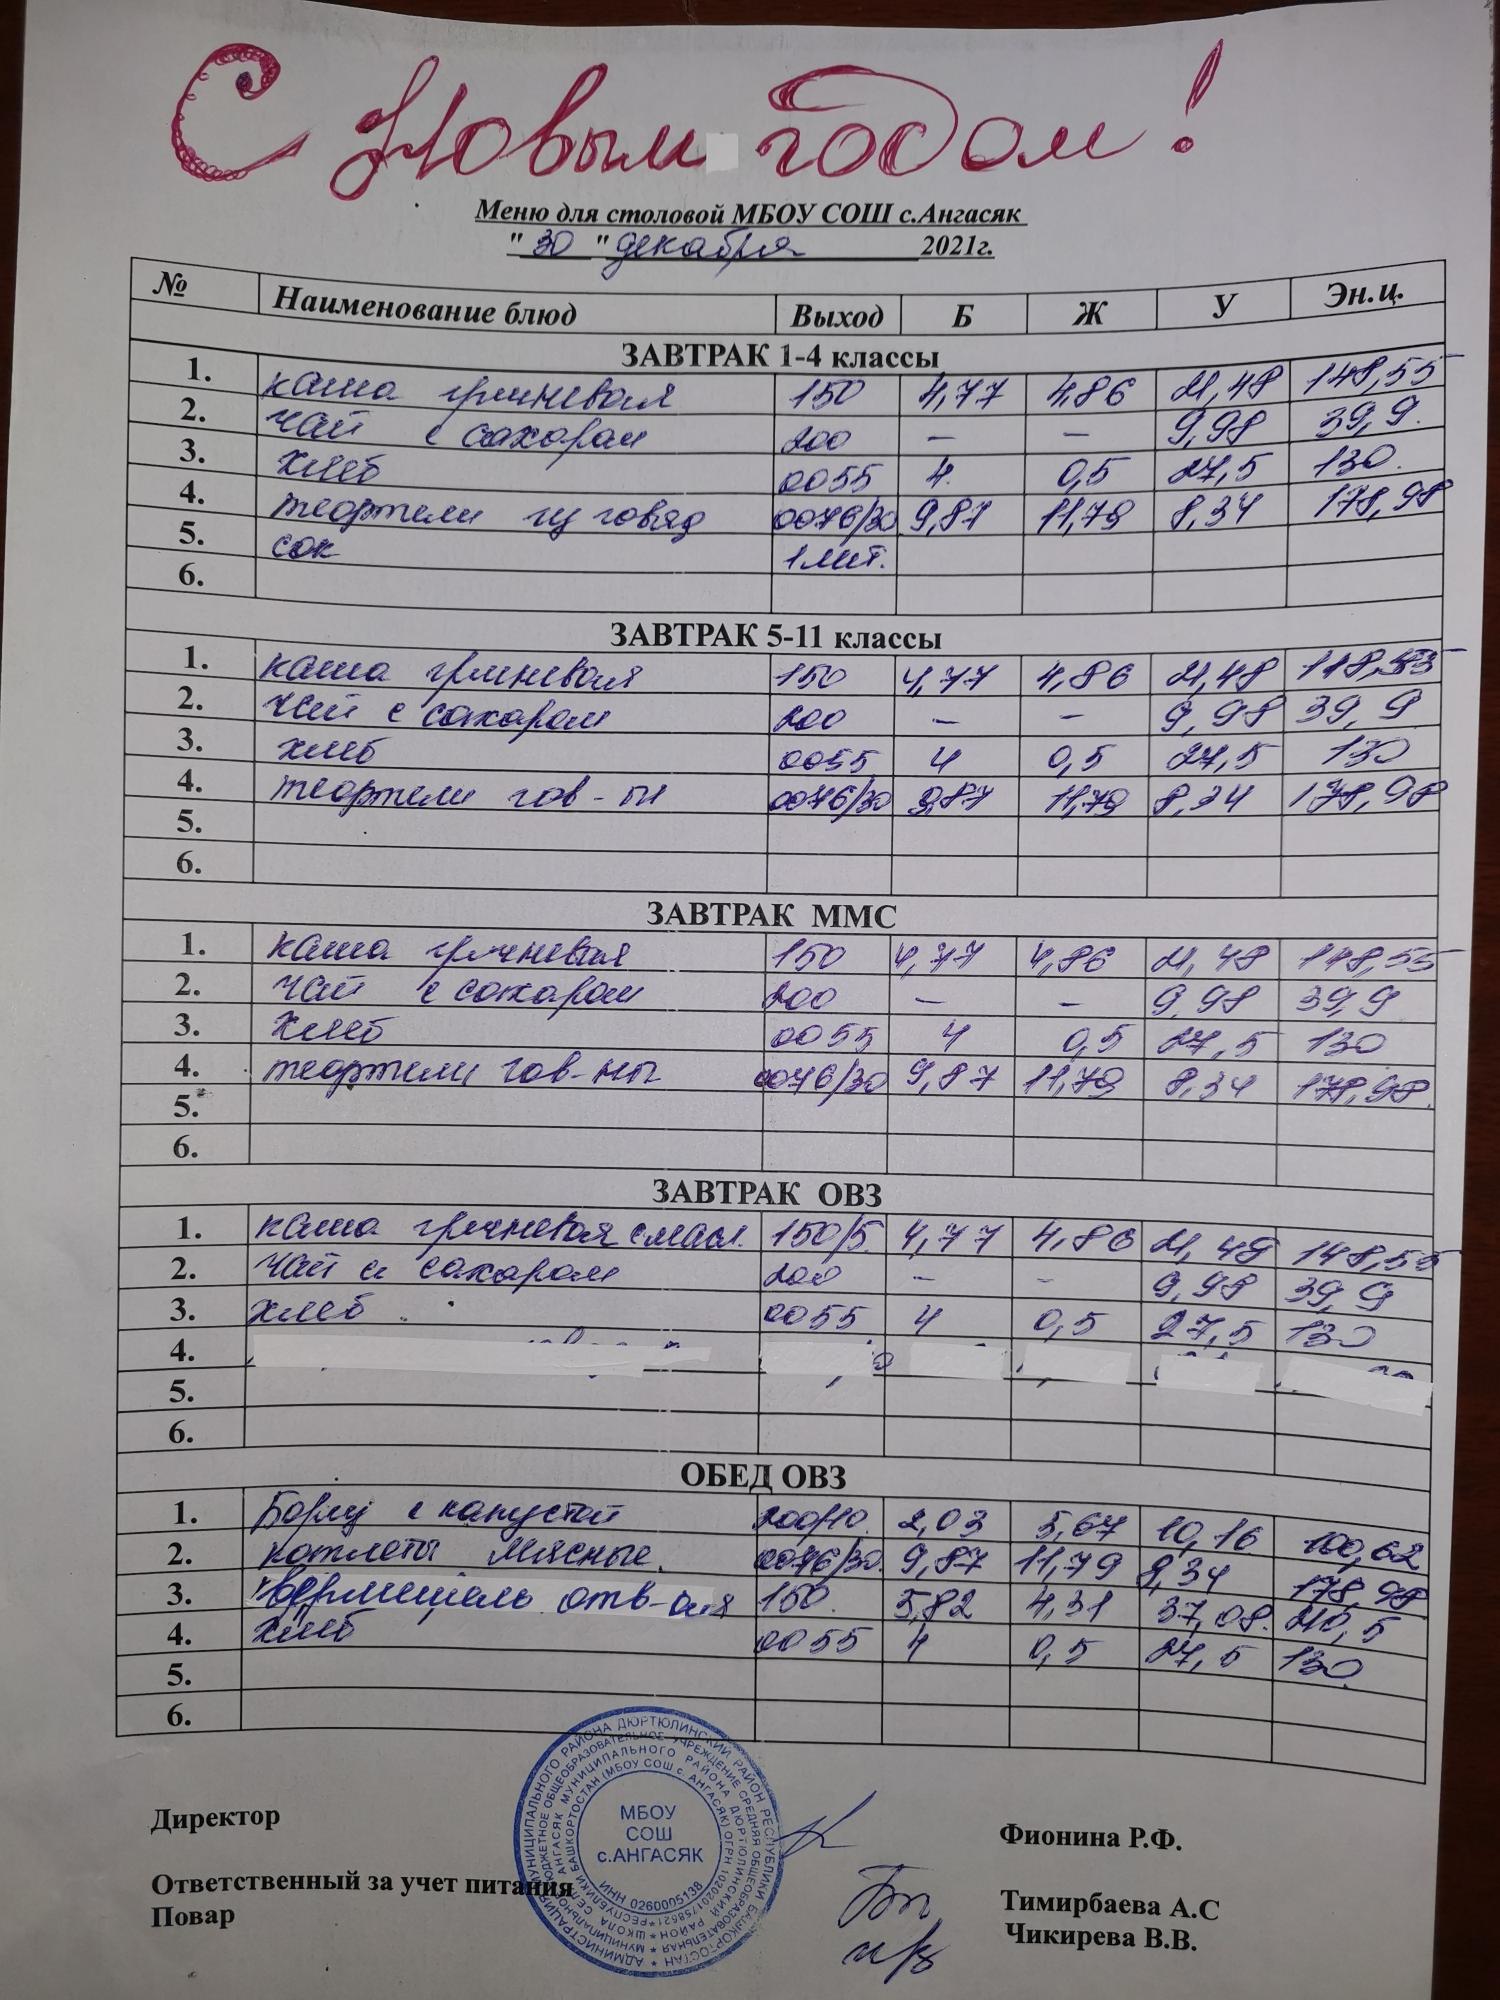 С Новым годом!
Меню для столовой МБОУ СОШ с.Ангасяк
"30" декабря 2021г.
№ Наименование блюд Выход Б Ж У Эн.ц.
ЗАВТРАК 1-4 классы
1. каша гречневая 150 4,77 4,86 21,48 148,55
2. чай с сахаром 200 – – 9,98 39,9.
3. хлеб 0055 4. 0,5 27,5 130.
4. тефтели из говяд 0076/30 9,87 11,79 8,34 178,98
5. сок 1лит.
6.
ЗАВТРАК 5-11 классы
1. каша гречневая 150 4,77 4,86 21,48 148,55
2. чай с сахаром 200 – – 9,98 39,9
3. хлеб 0055 4 0,5 27,5 130
4. тефтели гов-ы 0076/30 9,87 11,79 8,34 178,98
5.
6.
ЗАВТРАК ММС
1. каша гречневая 150 4,77 4,86 21,48 148,55
2. чай с сахаром 200 – – 9,98 39,9
3. хлеб 0055 4 0,5 27,5 130
4. тефтели гов-ны 0076/30 9,87 11,79 8,34 178,98.
5.
6.
ЗАВТРАК ОВЗ
1. каша гречневая с масл. 150/5. 4,77 4,86 21,48 148,55
2. чай с сахаром 200 – – 9,98 39,9
3. хлеб 0055 4 0,5 27,5 130
4.
5.
6.
ОБЕД ОВЗ
1. Борщ с капустой 200/10. 2,03 5,67 10,16 100,62
2. котлеты мясные. 0076/30. 9,87 11,79 8,34 178,98
3. вермишель отв-ая 150. 5,82 4,31 37,08. 210,5
4. хлеб 0055 4 0,5 27,5 130.
5.
6.
МБОУ
СОШ
с.АНГАСЯК
ИНН 0260005138
Директор Фионина Р.Ф.
Ответственный за учет питания Тимирбаева А.С
Повар Чикирева В.В.